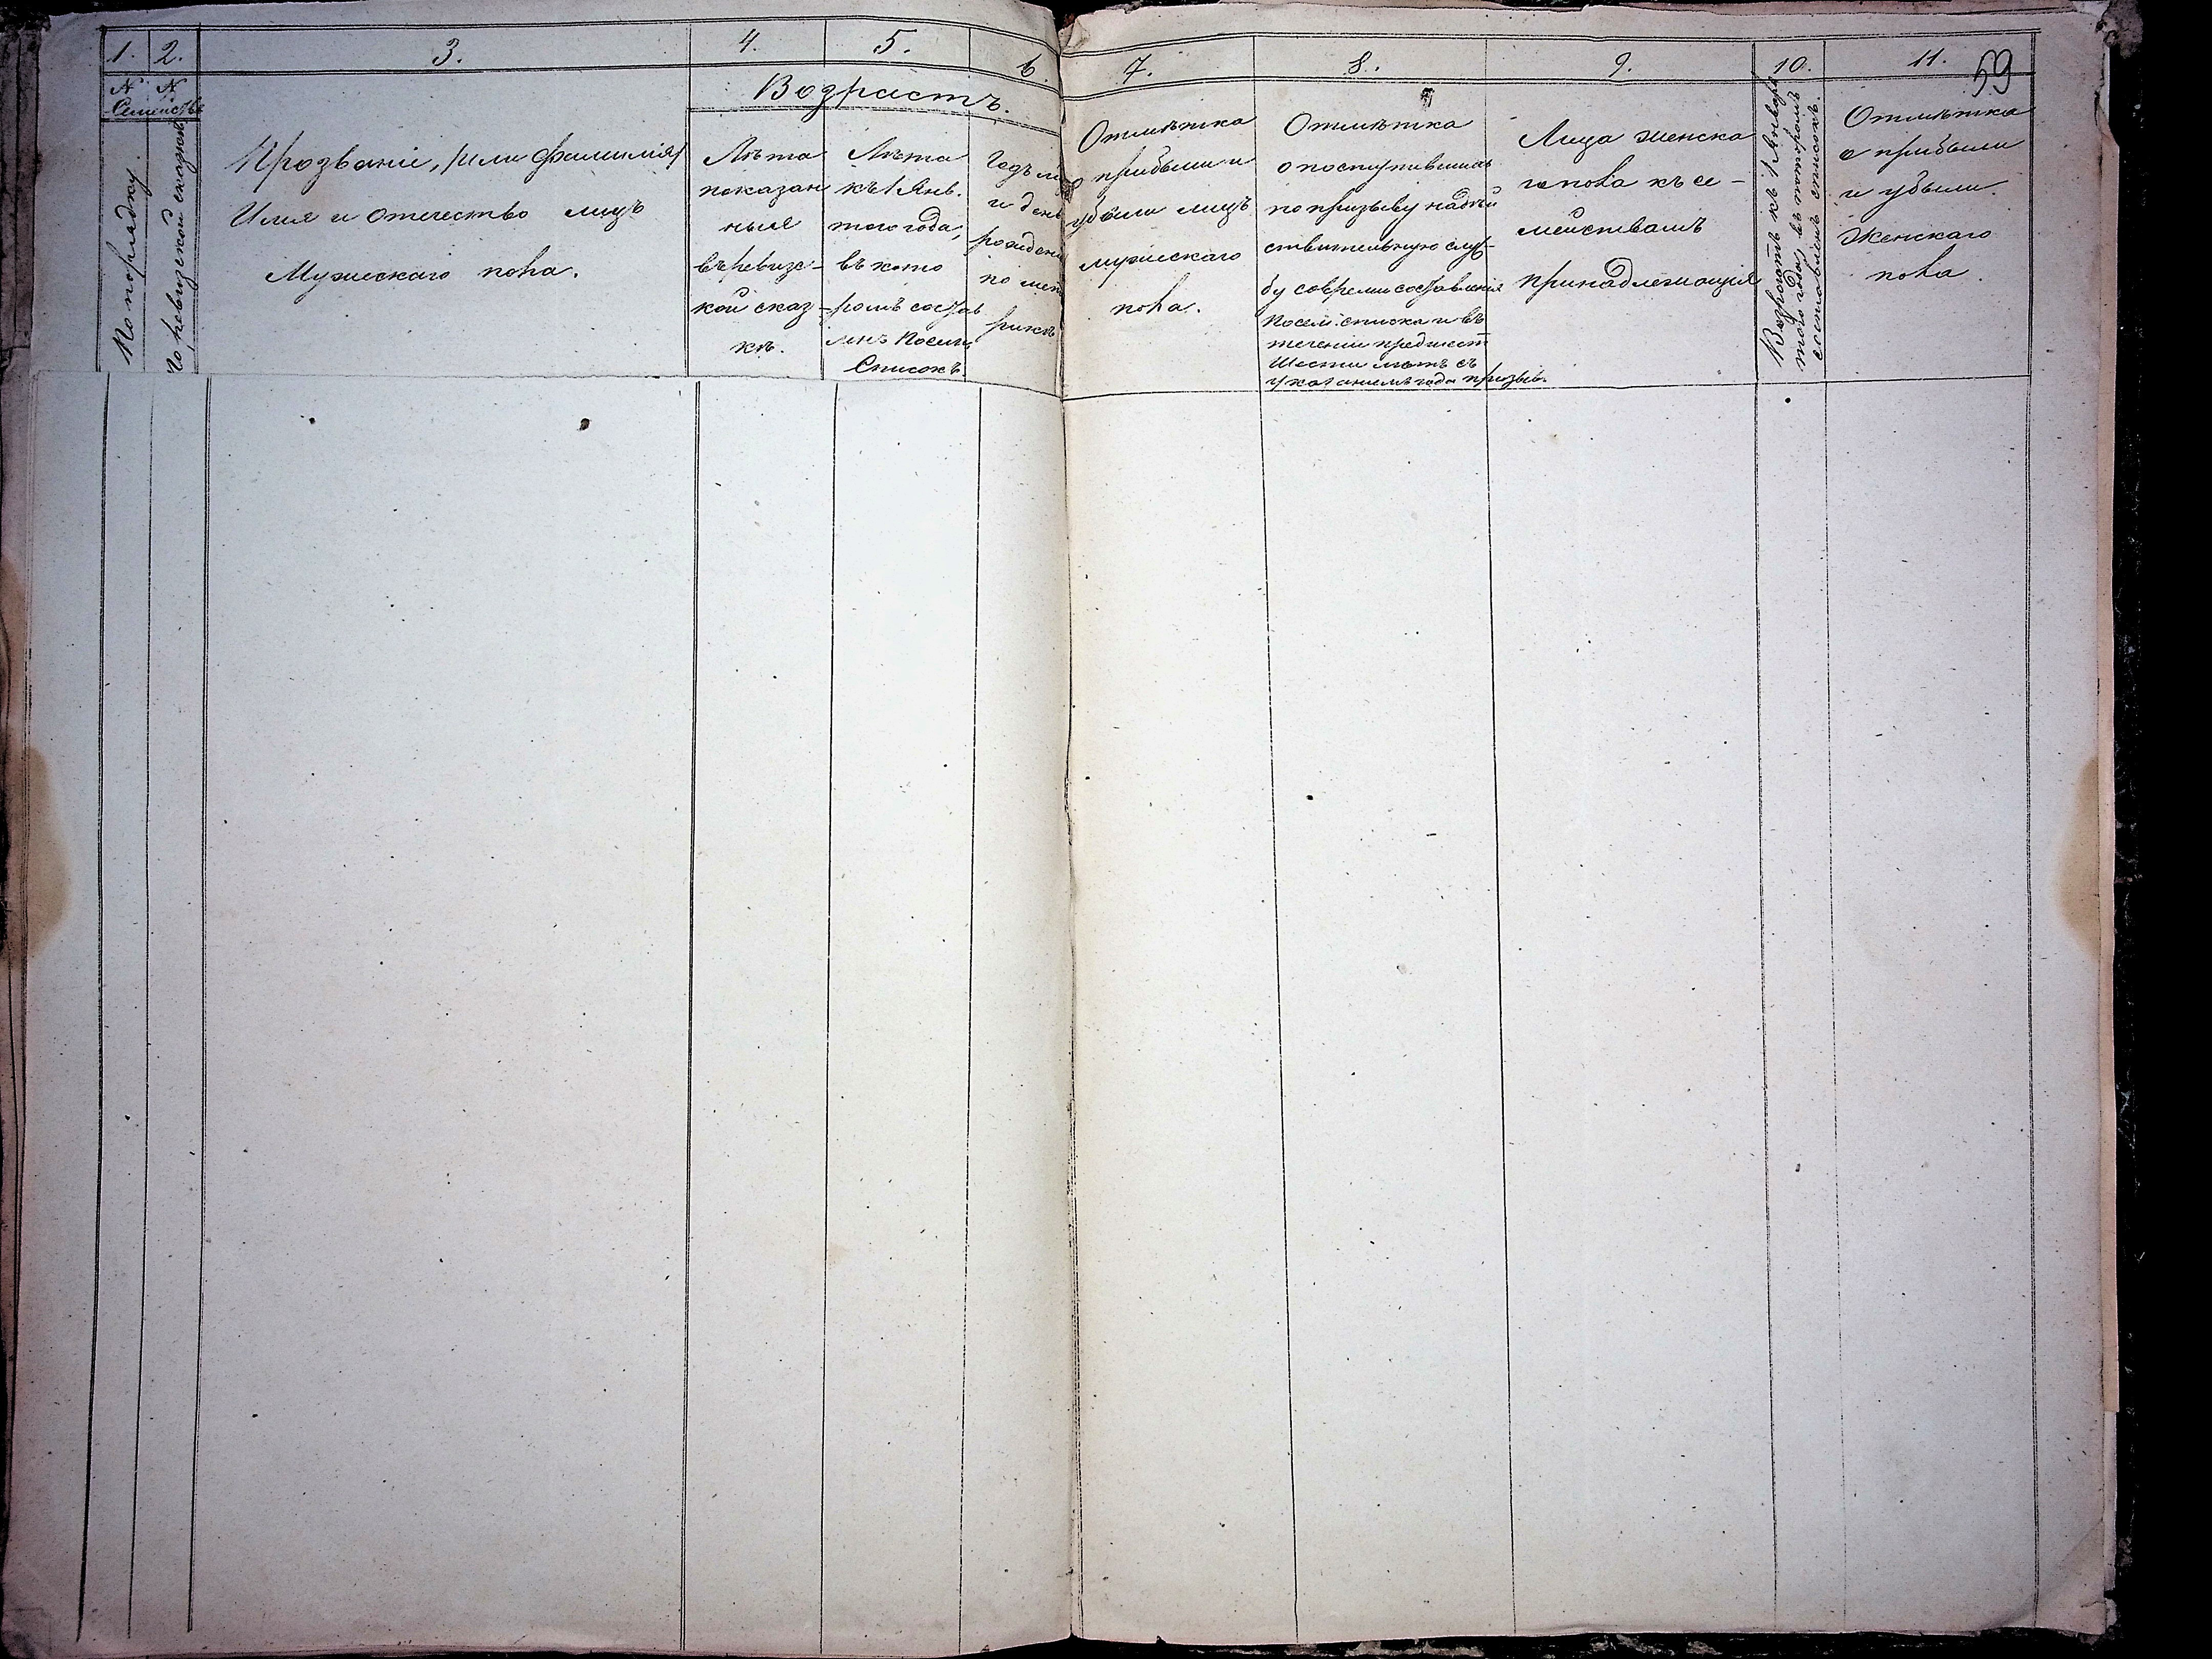 1.
2.
3.
4.
5.
6.
7.
8.
9.
10.
11.
59
N N
Семействъ
По порядку.
По ревизской сказкѣ
Прозваніе, /или фамилія/
Имя и отечество лицъ
Мужескаго пола.
Возрастъ.
Лѣта
показан
ныя
въ ревизс-
кой сказ-
кѣ.
Лѣта
къ 1 Янв.
того года,
въ кото
ромъ состав
ленъ Посем.
Списокъ.
Годъ м
и день
рожден
по мет
рикѣ
Отмѣтка
о прибыли и
убыли лицъ
мужескаго
пола.
Отмѣтка
о поступившихъ
по призыву на дѣй
ствительную служ-
бу со времи составленія
посем. списка и въ
теченіи предшест
шести лѣтъ съ
указаніемъ года призыв.
Лица женска
го пола къ се-
мействамъ
принадлежащія
Возрастъ къ 1 Января
того года, въ которомъ
составленъ списокъ.
Отмѣтка
о прибыли
и убыли
Женскаго
пола.